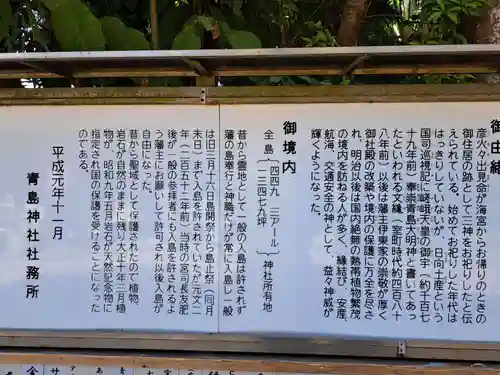 御由緒
彦火々出見命が海宮からお帰りのときの
御住居の跡として三神をお祀りしたと伝
えられている。始めてお祀りした年代は
はっきりしていないが、日向土産という
国司巡視記に嵯峨天皇の御宇(約千百七
十九年前)奉崇青島大明神と書いてあっ
たといわれる文亀(室町時代約四百八十
八年前)以後は藩主伊東家の崇敬が厚く
御社殿の改築や境内の保護に万全を尽さ
れ、明治以後は国内絶無の熱帯植物繁茂
の境内を訪ねる人が多く、縁結び、安産、
航海、交通安全の神として、益々神威が
輝くようになった。
御境内
全島
四四九、三アール
一三四七九坪
神社所有地
昔から霊地として一般の入島は許されず
藩の島奉行と神職だけが常に入島し一般
は旧三月十六日島開祭から島止祭(同月
末日)まで入島を許されていたが元文二
年(二百五十二年前)当時の宮司長友肥
後が一般の参拝者にも入島を許されるよ
う藩主にお願いして許可され以後入島が
自由になった。
昔から聖域として保護されたので植物、
岩石が自然のままに残り大正十年三月植
物が、昭和九年五月岩石が天然記念物に
指定され国の保護を受けることになった
のである。
平成元年十一月
青島神社社務所